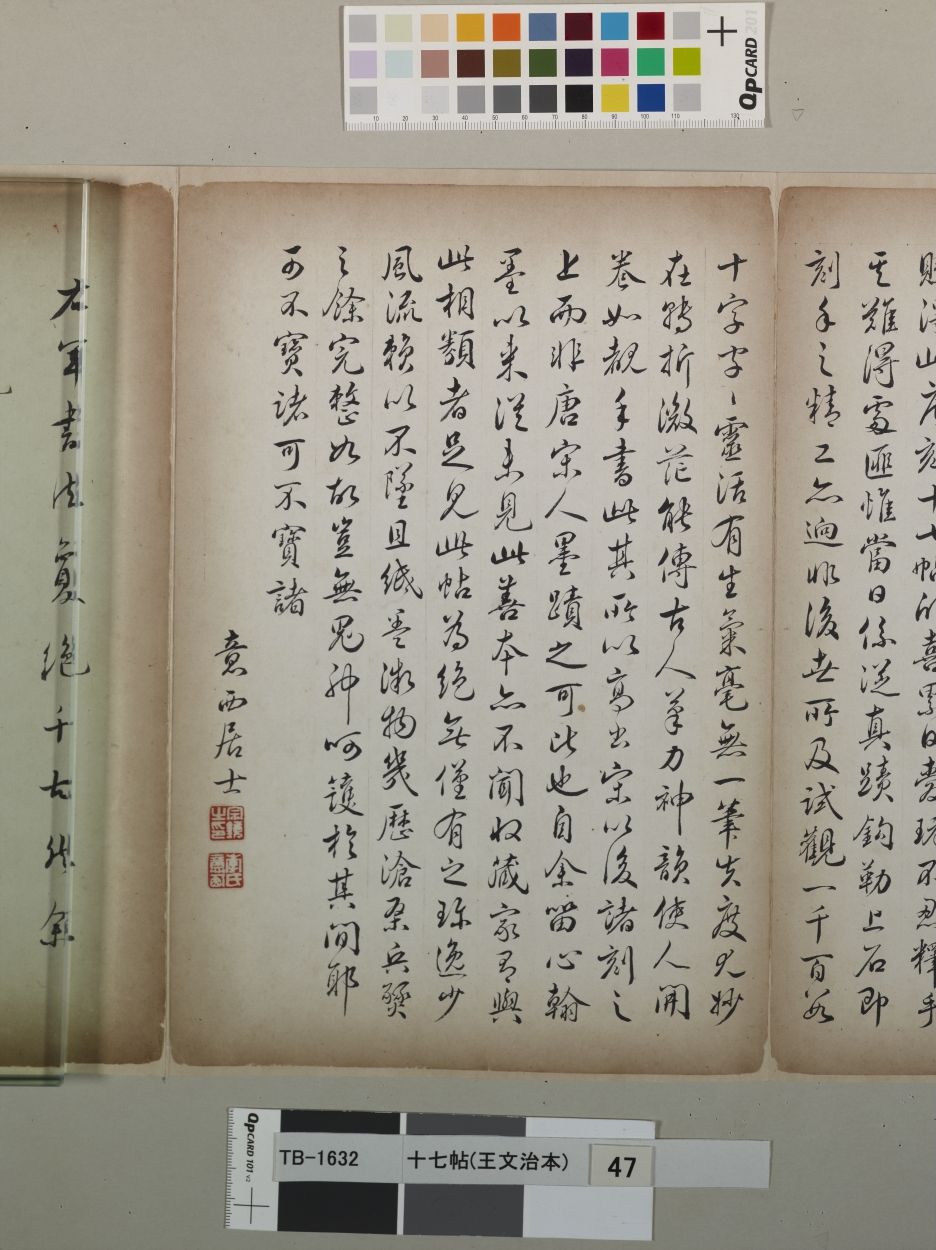 其難得處匪惟當日係從真蹟鈎勒上石即
刻手之精工亦迥非後世所及試觀一千百數
十字字〻靈活有生氣毫無一筆失度尤妙
在轉折微茫能傳古人筆力神韻使人開
卷如覩手書此其所以高出宋以後諸刻之
上而非唐宋人墨蹟之可比也自余留心翰
墨以來從未見此善本亦不聞收藏家有與
此相類者足見此帖為絕無僅有之珎逸少
風流賴以不墜且紙墨微物幾歷滄桑兵燹
之餘完整如故豈無鬼神呵護於其間耶
可不寶諸可不寶諸
意西居士
右軍書法夐絕千古然余
QPCARD 201
10 20 30 40 50 60 70 80 90 100 110 120 130
QPCARD 101 v2
TB-1632 十七帖(王文治本) 47